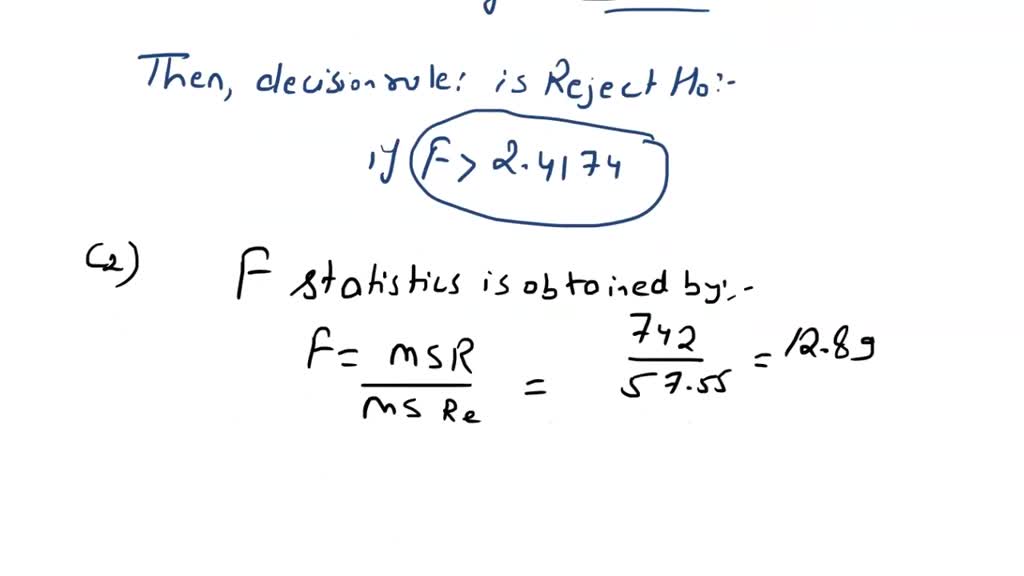 Then, decision rule: is Reject Ho:-
if F > 2.4174
(2) F statistics is obtained by:-
F = MSR / MS Re = 742 / 57.55 = 12.89